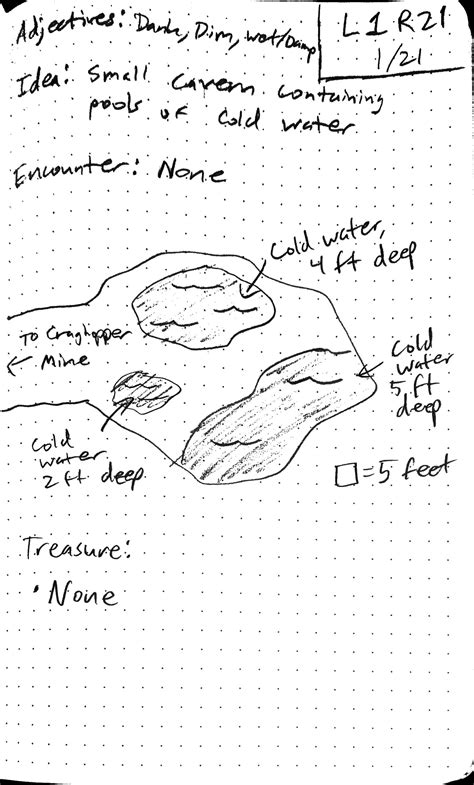 Adjectives: Dank, Dim, Wet/Damp
L1 R21
1/21
Idea: Small cavern containing
pools of cold water
Encounter: None
Cold water,
4 ft deep
To Craghopper
Mine
Cold
water
5 ft
deep
Cold
water
2 ft deep
= 5 feet
Treasure:
• None